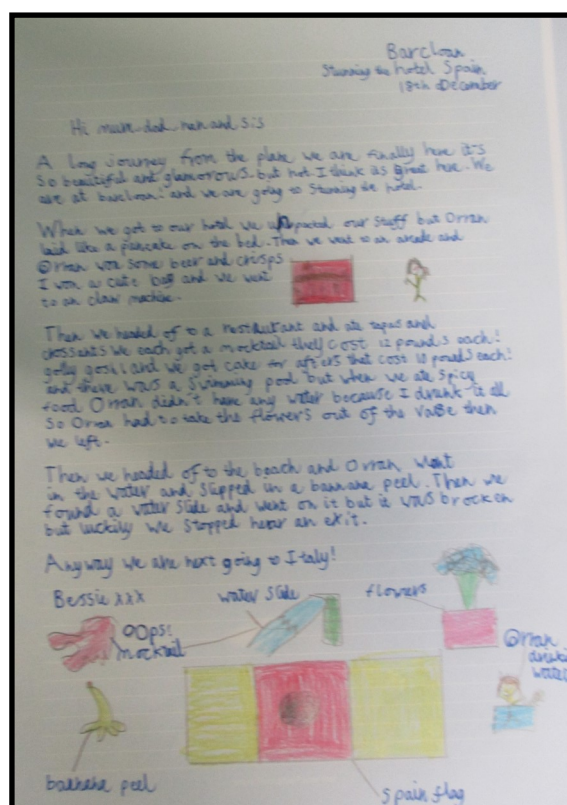 Barcloan
Stunning the hotel Spain
18th december
Hi mum dad nan and sis
A long journey from the plane we are finally here it's
so beautiful and glamorous but hot I think its great here. We
are at barcloan! and we are going to Stunning the hotel.
When we got to our hotel we unpacked our stuff but Orran
laid like a pancake on the bed. Then we went to an arcade and
Orran won some beer and crisps
I won a cute bag and we went
to an claw machine.
Then we headed of to a restaurant and ate tapas and
crossants We each got a mocktail they cost 12 pounds each!
golly gosh! and we got cake for afters that cost 10 pounds each!
and there was a swimming pool but when we ate spicy
food Orran didn't have any water because I drunk it all
So Orran had to take the flowers out of the vase then
we left.
Then we headed of to the beach and Orran went
in the water and slipped in a bannana peel. Then we
found a water slide and went on it but it was brocken
but luckily we stopped near an exit.
Anyway we are next going to Italy!
Bessie xxx
water slide
flowers
OOps!
mocktail
Orran
drinking
water
bannana peel
spain flag